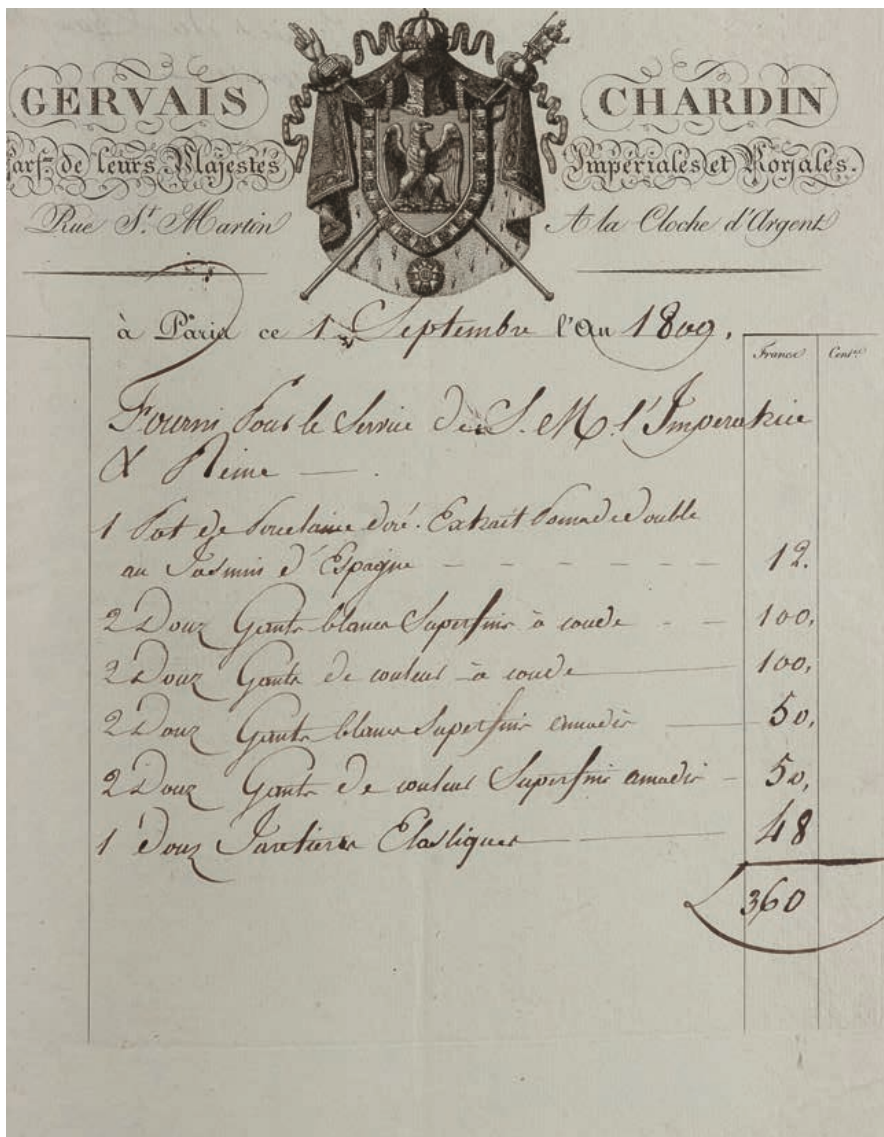 GERVAIS CHARDIN
Parf.rs de leurs Majestés Impériales et Royales.
Rue St. Martin A la Cloche d'Argent
à Paris ce 1er Septembre l'An 1809.
Francs Cent.es
Fourni Pour le Service De S. M. l'Imperatrice
& Reine —
1 Pot de Porcelaine doré. Extrait Pomade Double
au Jasmin d'Espagne - - - - - - 12.
2 Douz Gants blancs Superfins à coude - - 100,
2 Douz Gants de couleur à coude — 100,
2 Douz Gants blancs Superfins amadis — 50,
2 Douz Gants De couleur Superfins amadis - 50,
1 Douz Jaretieres Elastiques — 48
360